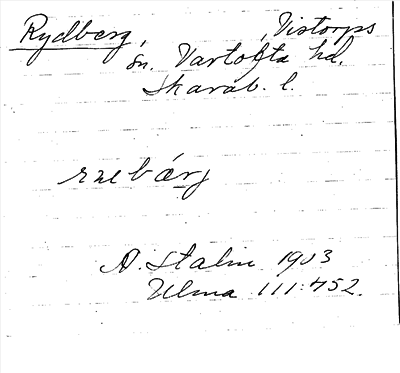 Rydberg, Vistorps
sn. Vartofta hd.
Skarab. l.
rzebårj
A. Stalin 1903
Ulma 111:452.